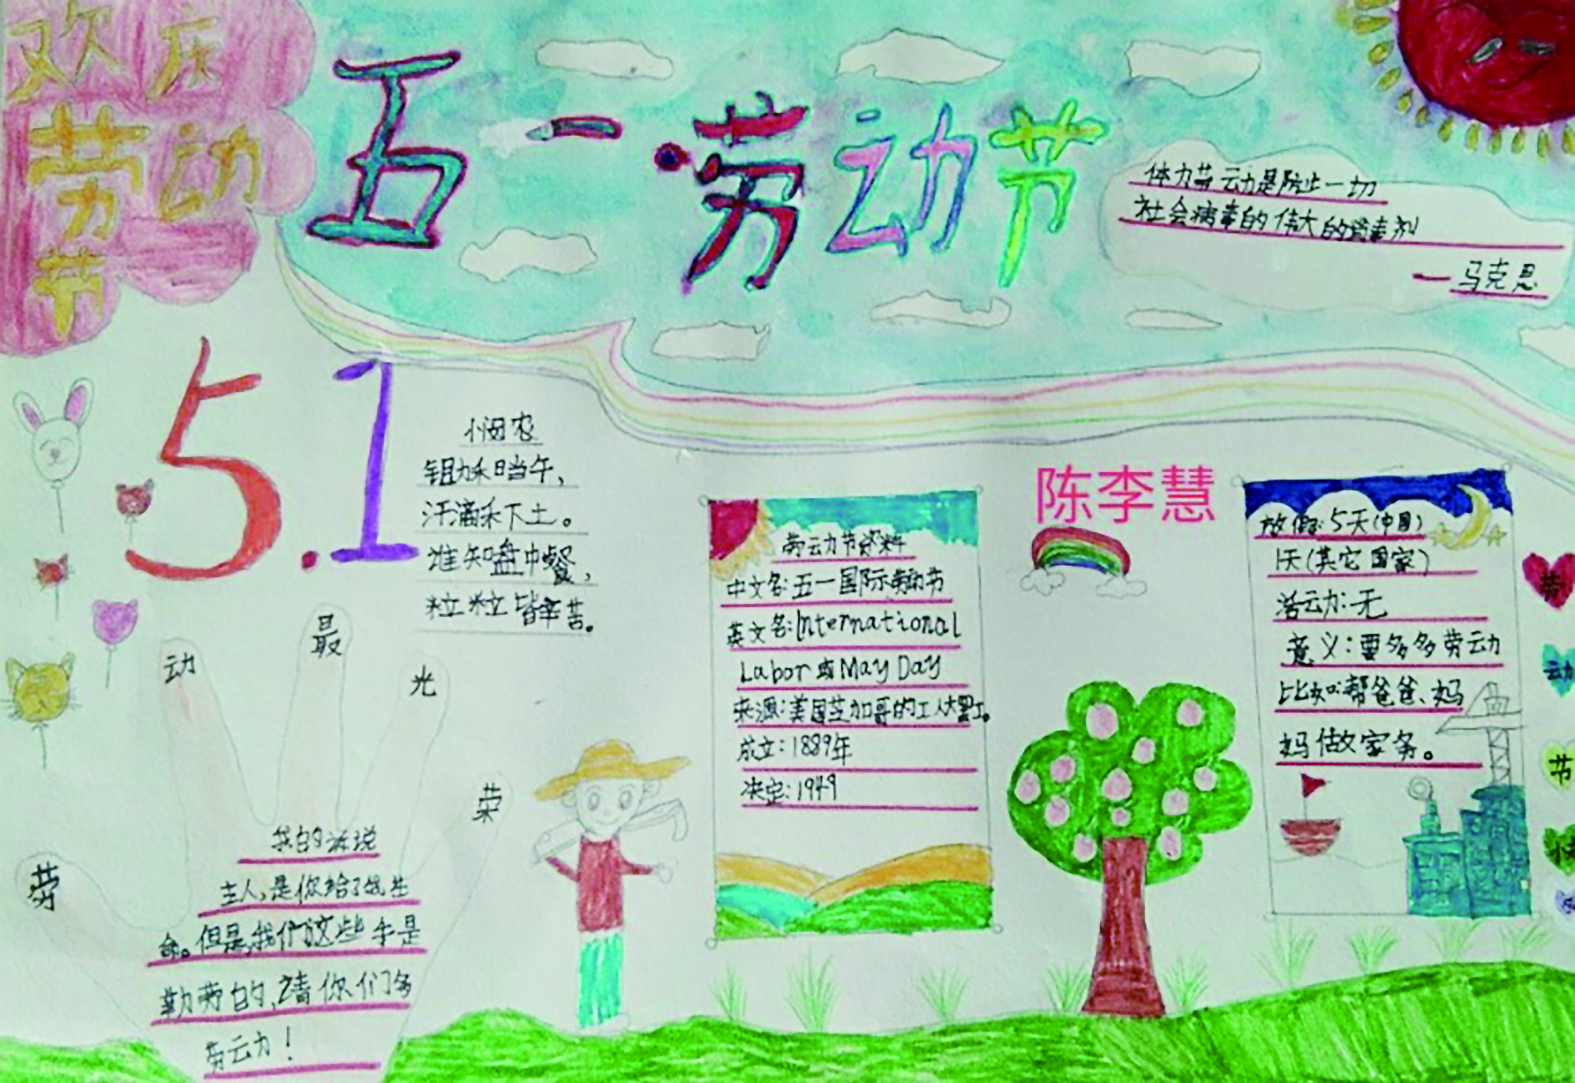 欢庆
劳动
节
五一·劳动节
体力劳动是防止一切
社会病毒的伟大的消毒剂
—马克思
5.1
悯农
锄禾日当午，
汗滴禾下土。
谁知盘中餐，
粒粒皆辛苦。
劳
动
最
光
荣
我的诉说
主人，是你给了我生
命。但是，我们这些手是
勤劳的，请你们多
劳动！
劳动节资料
中文名：五一国际劳动节
英文名：International
Labor或May Day
来源：美国芝加哥的工人大罢工。
成立：1889年
决定：1949
陈李慧
放假：5天（中国）
1天（其它国家）
活动：无
意义：要多多劳动
比如：帮爸爸、妈
妈做家务。
劳
动
节
快